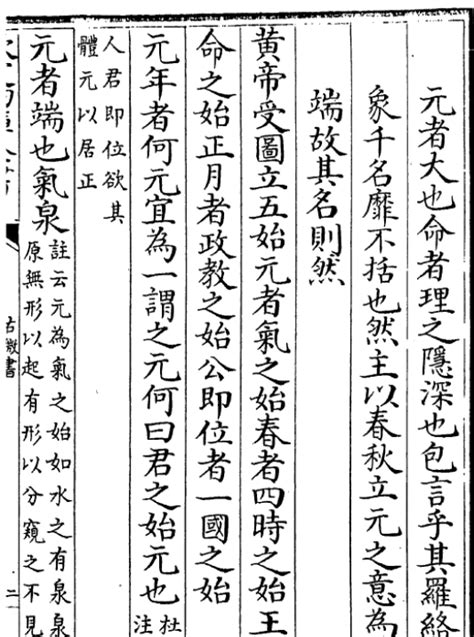 元者大也命者理之隱深也包言乎其羅絡
象千名靡不括也然主以春秋立元之意為
端故其名則然
黃帝受圖立五始元者氣之始春者四時之始王
命之始正月者政教之始公即位者一國之始
元年者何元宜為一謂之元何曰君之始元也
杜
注
人君即位欲其
體元以居正
元者端也氣泉
註云元為氣之始如水之有泉泉
原無形以起有形以分窺之不見
古微書
二